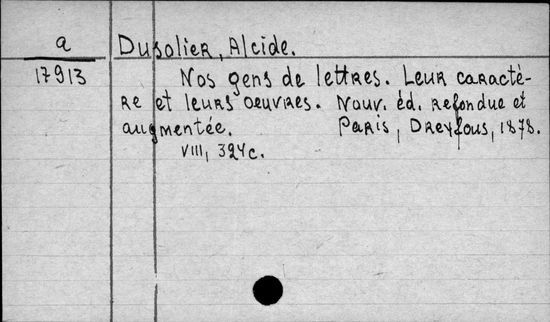 a
17913
Dusolier, Alcide.
Nos gens de lettres. Leur caractè-
re et leurs oeuvres. Nouv. éd. refondue et
augmentée. Paris, Dreyfous, 1878.
VIII, 324c.